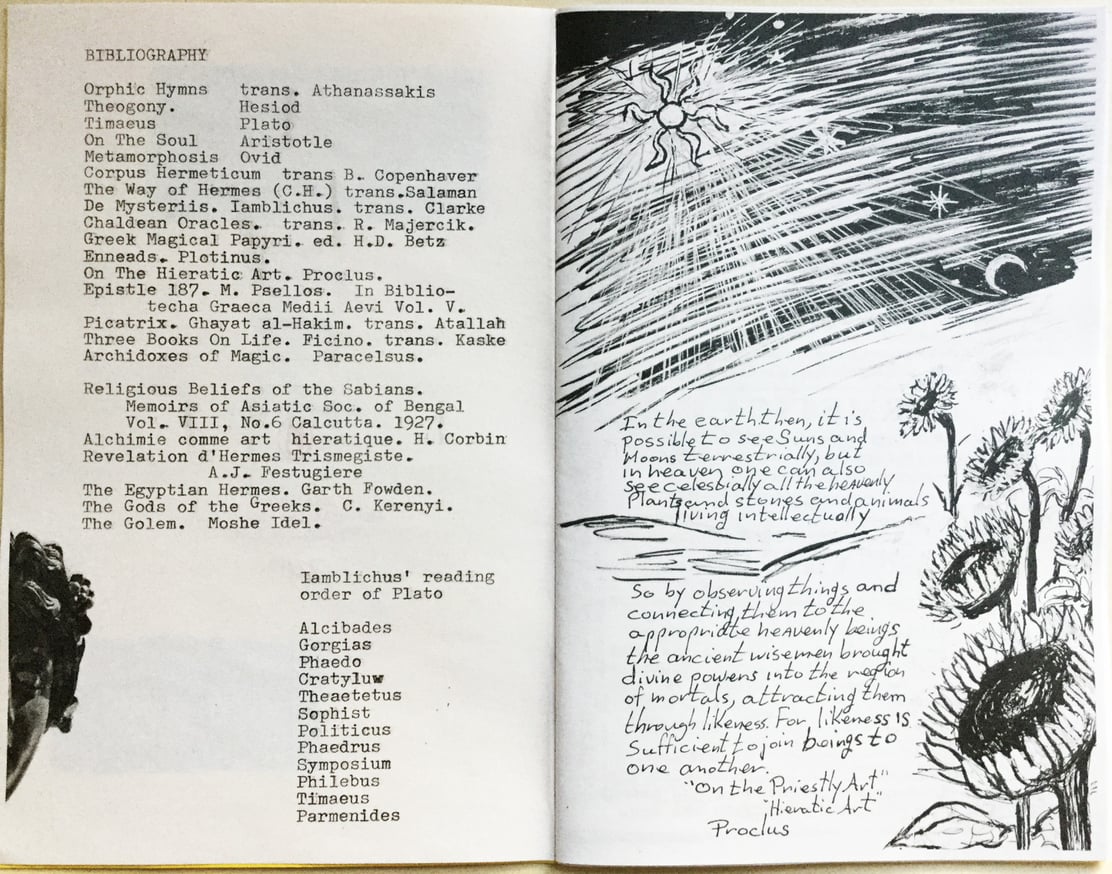 BIBLIOGRAPHY
Orphic Hymns trans. Athanassakis
Theogony. Hesiod
Timaeus Plato
On The Soul Aristotle
Metamorphosis Ovid
Corpus Hermeticum trans B. Copenhaver
The Way of Hermes (C.H.) trans.Salaman
De Mysteriis. Iamblichus. trans. Clarke
Chaldean Oracles. trans. R. Majercik.
Greek Magical Papyri. ed. H.D. Betz
Enneads. Plotinus.
On The Hieratic Art. Proclus.
Epistle 187. M. Psellos. In Biblio-
techa Graeca Medii Aevi Vol. V.
Picatrix. Ghayat al-Hakim. trans. Atallah
Three Books On Life. Ficino. trans. Kaske
Archidoxes of Magic. Paracelsus.
Religious Beliefs of the Sabians.
Memoirs of Asiatic Soc. of Bengal
Vol. VIII, No.6 Calcutta. 1927.
Alchimie comme art hieratique. H. Corbin
Revelation d'Hermes Trismegiste.
A.J. Festugiere
The Egyptian Hermes. Garth Fowden.
The Gods of the Greeks. C. Kerenyi.
The Golem. Moshe Idel.
Iamblichus' reading
order of Plato
Alcibades
Gorgias
Phaedo
Cratyluw
Theaetetus
Sophist
Politicus
Phaedrus
Symposium
Philebus
Timaeus
Parmenides
In the earth then, it is
possible to see Suns and
Moons terrestrially, but
in heaven one can also
see celestially all the heavenly
Plants and stones and animals
living intellectually
So by observing things and
connecting them to the
appropriate heavenly beings
the ancient wisemen brought
divine powers into the region
of mortals, attracting them
through likeness. For likeness is
Sufficient to join beings to
one another.
"On the Priestly Art"
"Hieratic Art"
Proclus